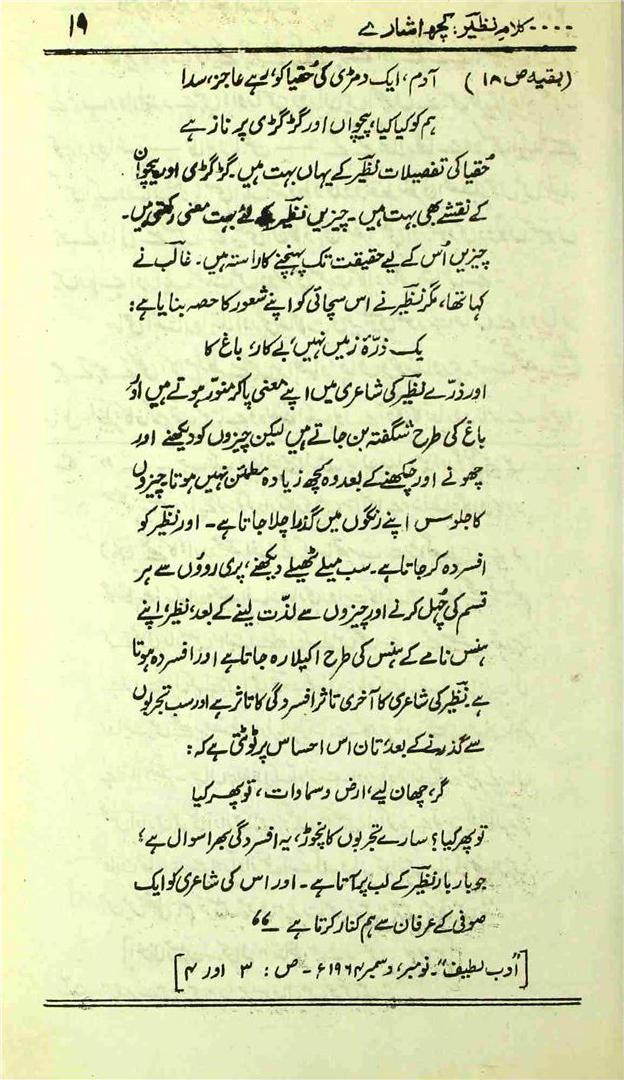 ۔۔۔۔ کلامِ نظیر: کچھ اشارے ۱۹
(بقیہ ص ۱۸) آدم، ایک دمڑی کی حُقیا کو، ہے عاجز، سدا
ہم کو کیا کیا، پیچواں اور گڑگڑی پر ناز ہے
حُقیا کی تفصیلات نظیر کے یہاں بہت ہیں۔ گڑگڑی اور پیچوان
کے نقشے بھی بہت ہیں۔ چیزیں نظیر کے لئے بہت معنی رکھتی ہیں۔
چیزیں اُس کے لیے حقیقت تک پہنچنے کا راستہ ہیں۔ غالب نے
کہا تھا، مگر نظیر نے اس سچائی کو اپنے شعور کا حصہ بنایا ہے:
یک ذرّۂ زمیں نہیں، بے کار، باغ کا
اور ذرّے نظیر کی شاعری میں اپنے معنی پا کر منوّر ہوتے ہیں اور
باغ کی طرح شگفتہ بن جاتے ہیں لیکن چیزوں کو دیکھنے اور
چھونے اور چکھنے کے بعد وہ کچھ زیادہ مطمئن نہیں ہوتا۔ چیزوں
کا جلوس اپنے رنگوں میں گذرا چلا جاتا ہے۔ اور نظیر کو
افسردہ کر جاتا ہے۔ سب میلے ٹھیلے دیکھنے، پری روؤں سے ہر
قسم کی چُہل کرنے اور چیزوں سے لذّت لینے کے بعد، نظیر، اپنے
ہنس نامے کے ہنس کی طرح اکیلا رہ جاتا ہے اور افسردہ ہوتا
ہے۔ نظیر کی شاعری کا آخری تاثر افسردگی کا تاثر ہے اور سب تجربوں
سے گذرنے کے بعد، تان اس احساس پر ٹوٹتی ہے کہ:
گر، چھان لیے، ارض و سماوات، تو پھر کیا
تو پھر کیا؟ سارے تجربوں کا نچوڑ، یہ افسردگی بھرا سوال ہے،
جو بار بار نظیر کے لب پر آتا ہے۔ اور اس کی شاعری کو ایک
صوفی کے عرفان سے ہم کنار کرتا ہے ۔“
[”ادب لطیف“۔ نومبر، دسمبر ۱۹۶۴ء۔ ص: ۳ اور ۴]